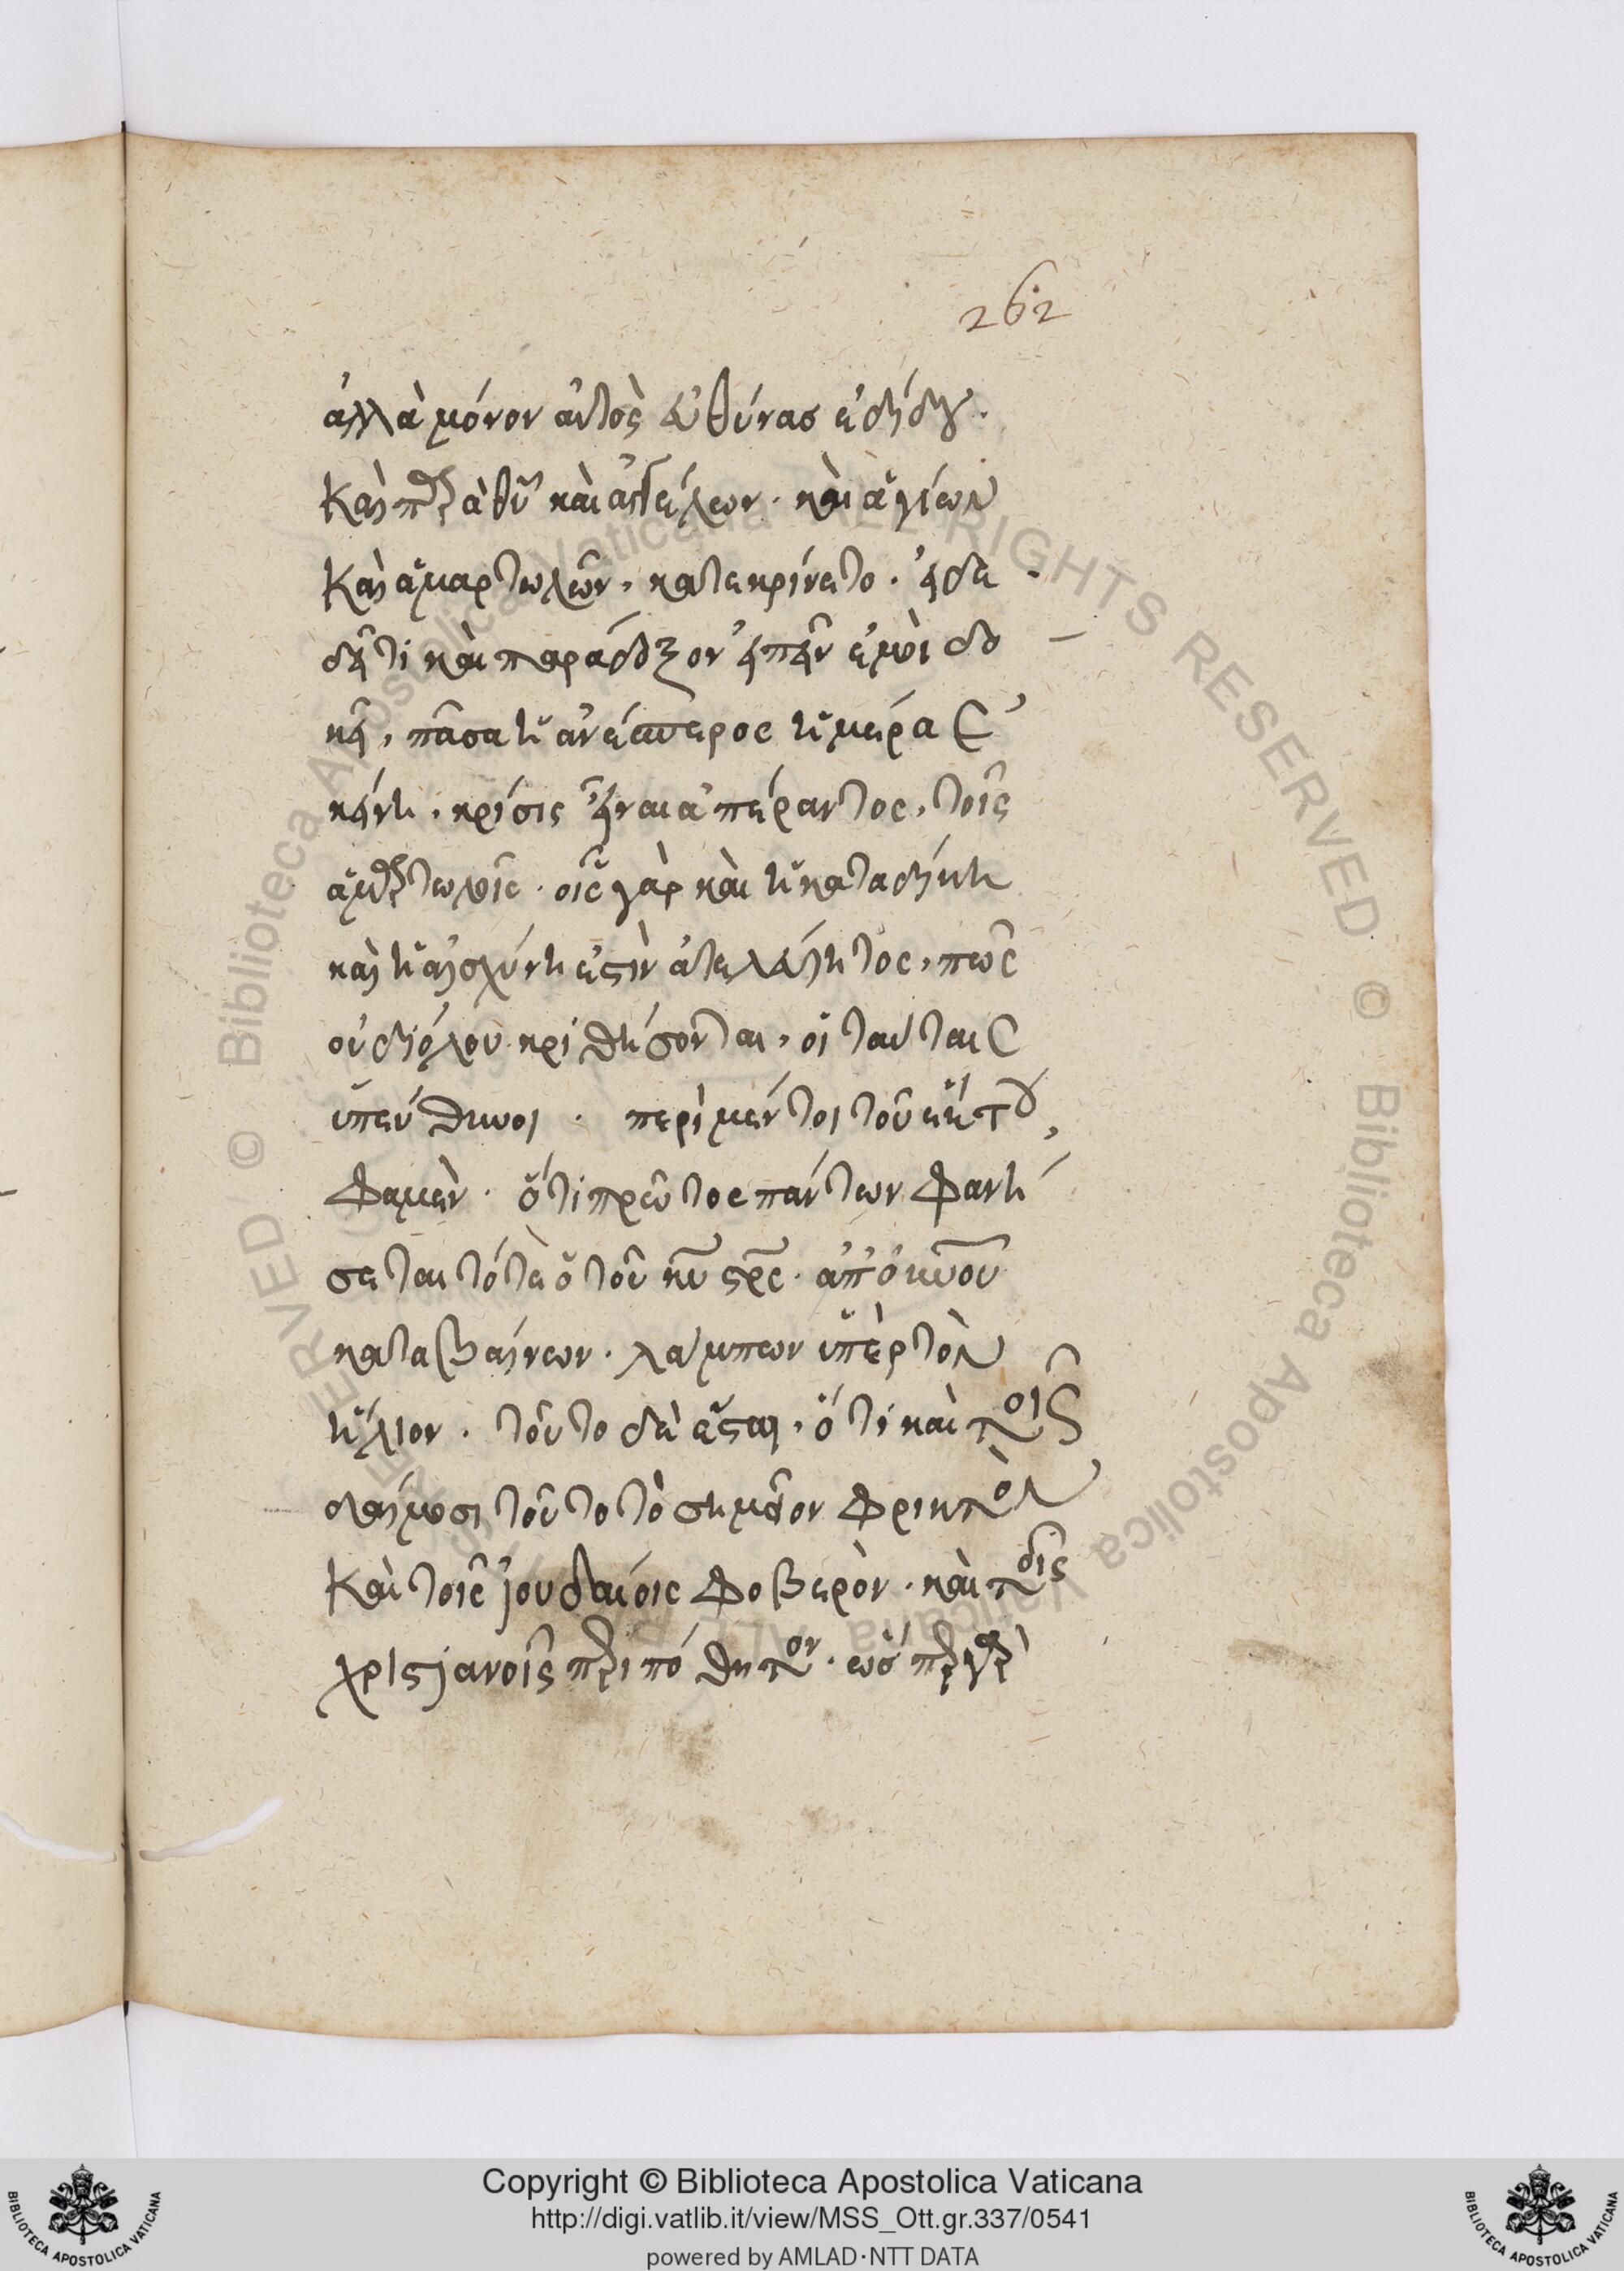 262
ἀλλὰ μόνον αὐτὸς εὐθύνας ἐδίδει.
Καὶ παρὰ θυ καὶ ἀγγέλων. καὶ ἁγίων
Καὶ ἁμαρτωλῶν, κατεκρίνετο. εἰ δὲ
δεῖ τι καὶ παράδοξον εἰπεῖν ἐμοὶ δο
κεῖ, πᾶσα ἡ ἀνέσπερος ἡμέρα ἐ
κείνη, κρίσις εἶναι ἀπέραντος, τοῖς
ἁμαρτωλοῖς. οἷς γὰρ καὶ ἡ καταδίκη
καὶ ἡ αἰσχύνη ἐστὶν ἀτελεύτητος, πῶς
οὐ διόλου κριθήσονται, οἱ ταύταις
ὑπεύθυνοι. περὶ μέντοι τοῦ ἕκτου,
φαμὲν. ὅτι πρῶτος πάντων φανή
σεται τότε ὁ τοῦ κυ σρς. ἀπὸ οὐνου
καταβαίνων. λάμπων ὑπὲρ τὸν
ἥλιον. τοῦτο δὲ ἔσται, ὅτι καὶ τοῖς
δαίμοσι τοῦτο τὸ σημεῖον φρικτὸν
Καὶ τοῖς ἰουδαίοις φοβερὸν. καὶ τοῖς
χριστιανοῖς περιπόθητον. ὥσπερ γὰρ
Copyright © Biblioteca Apostolica Vaticana
http://digi.vatlib.it/view/MSS_Ott.gr.337/0541
powered by AMLAD·NTT DATA
BIBLIOTECA APOSTOLICA VATICANA
BIBLIOTECA APOSTOLICA VATICANA
© Biblioteca Apostolica Vaticana ALL RIGHTS RESERVED © Biblioteca Apostolica Vaticana ALL RIGHTS RESERVED